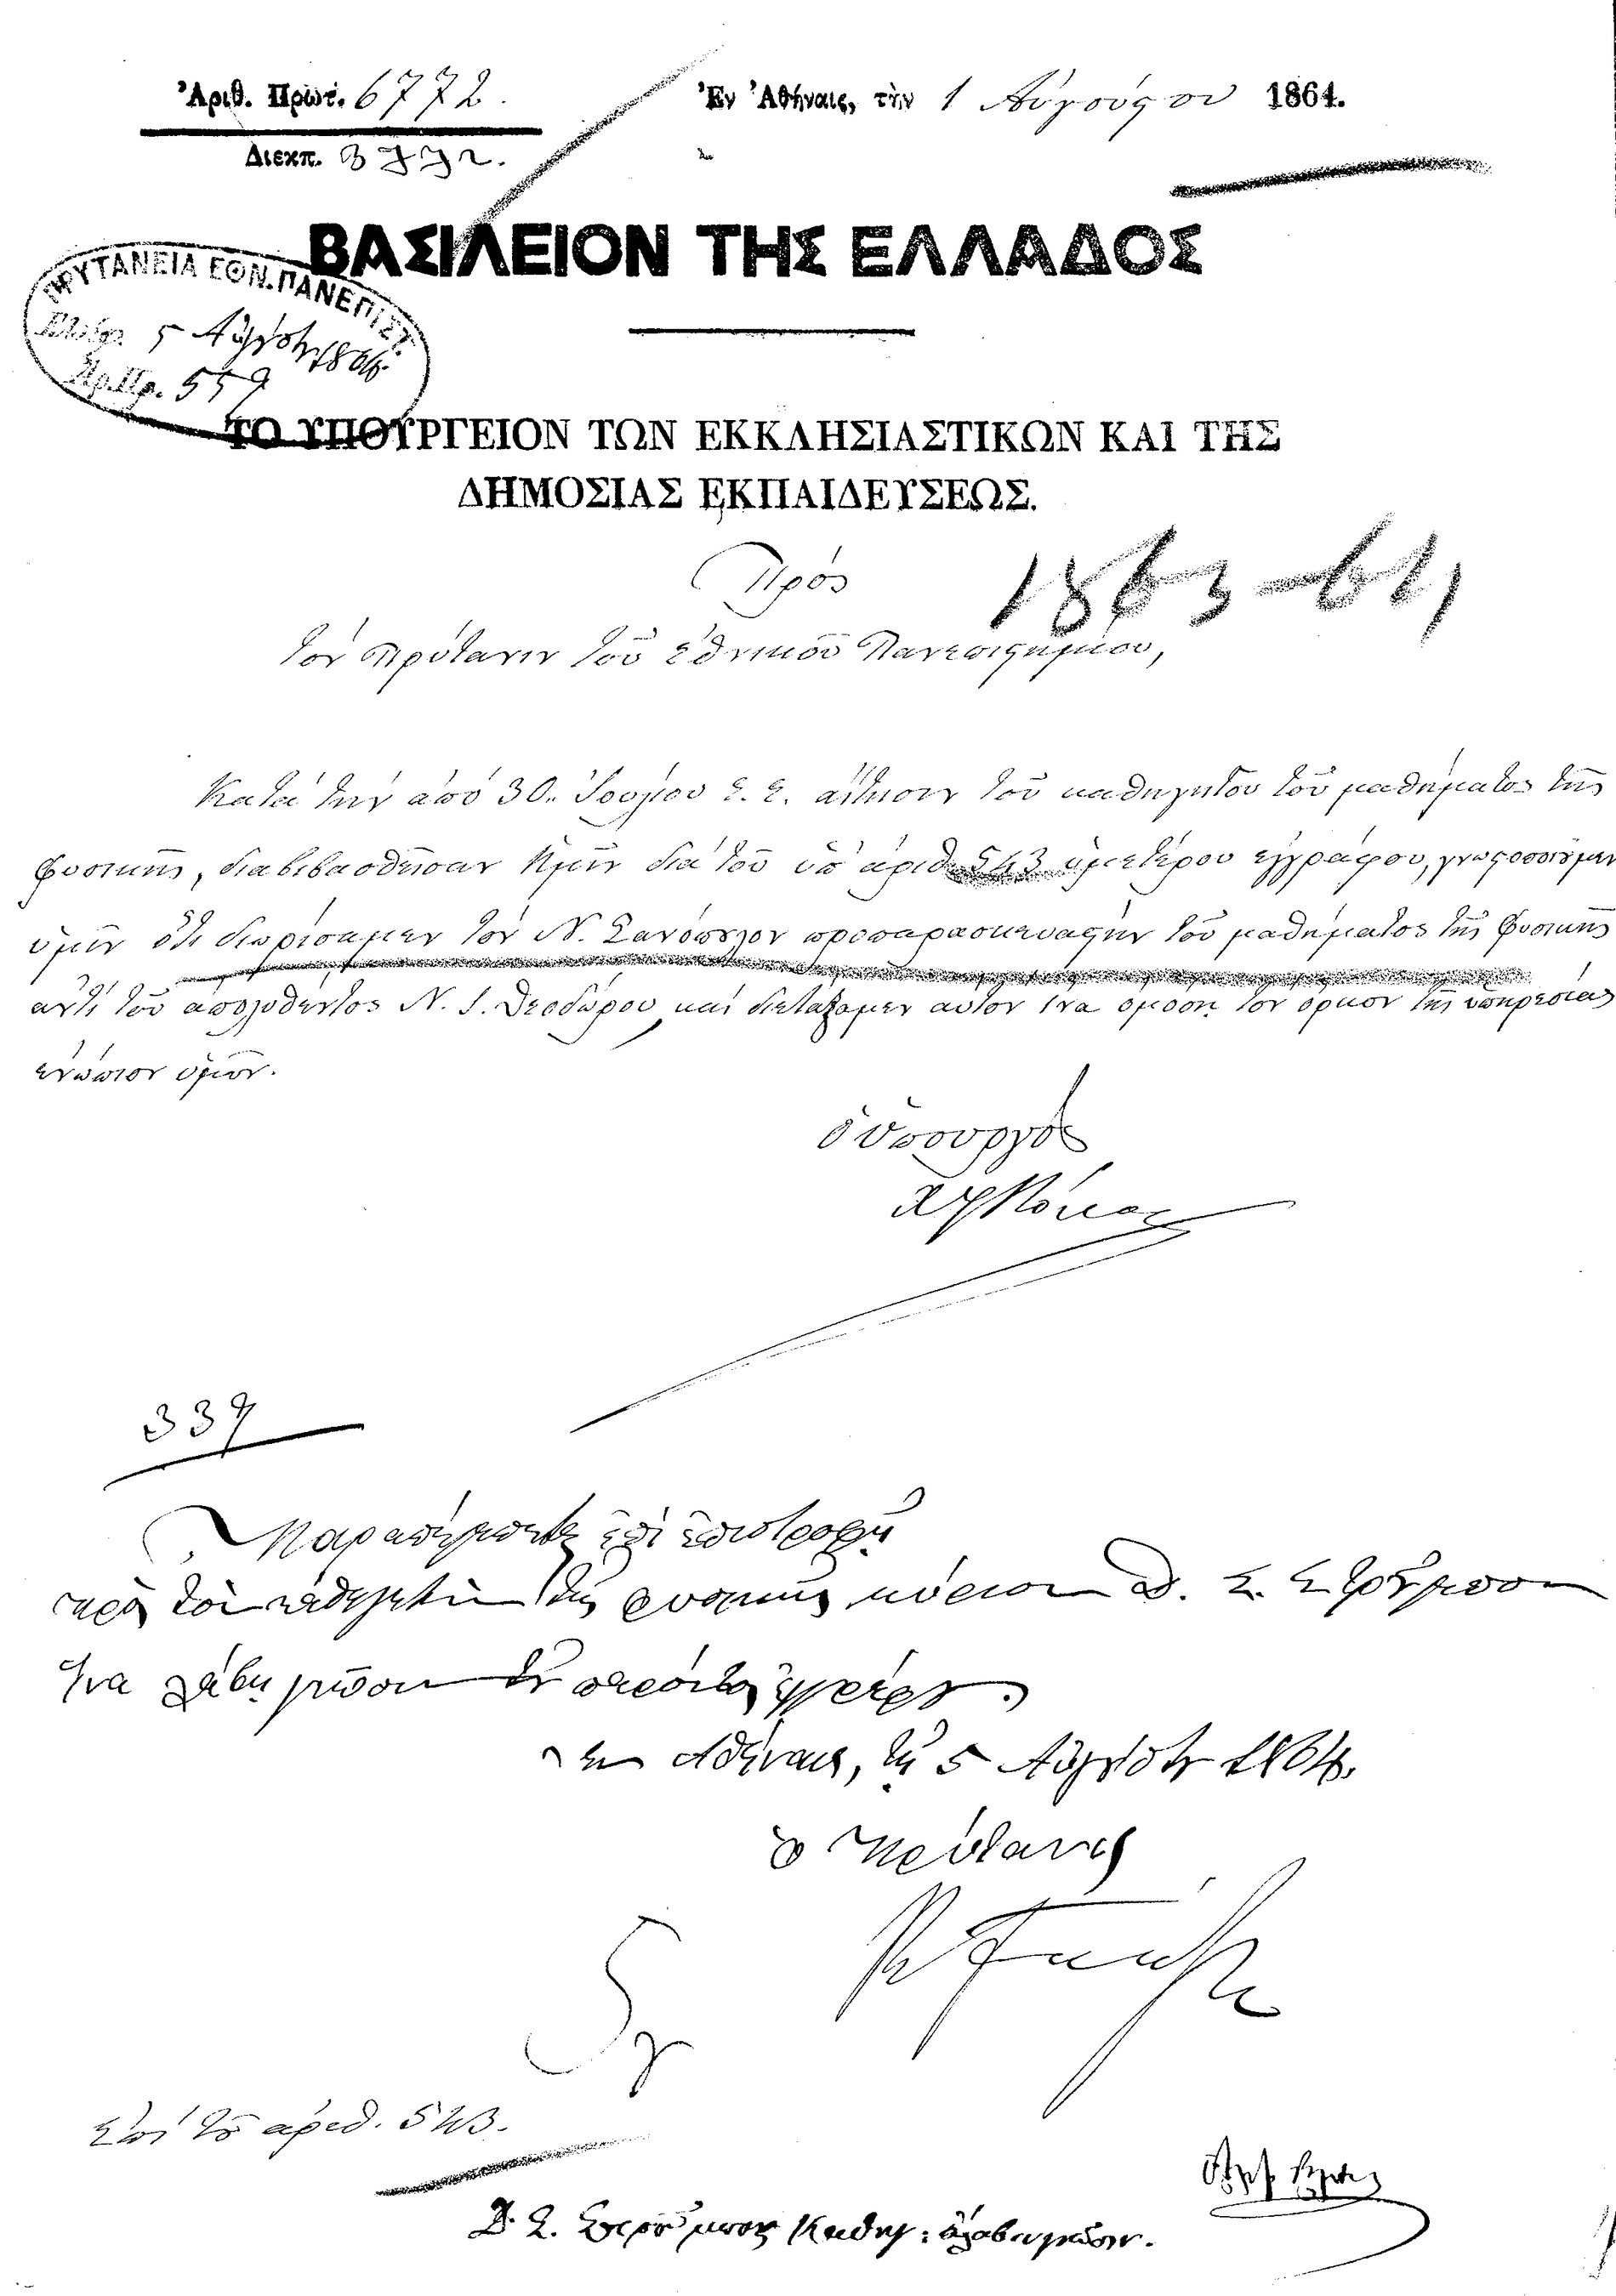 Ἀριθ. Πρωτ. 6772.
Διεκπ. 3772.
Ἐν Ἀθήναις, τὴν 1 Αὐγούστου 1864.
ΒΑΣΙΛΕΙΟΝ ΤΗΣ ΕΛΛΑΔΟΣ
ΠΡΥΤΑΝΕΙΑ ΕΘΝ. ΠΑΝΕΠΙΣΤ.
5 Αὐγούστου 1864
Ἀρ. Πρ. 559
ΤΟ ΥΠΟΥΡΓΕΙΟΝ ΤΩΝ ΕΚΚΛΗΣΙΑΣΤΙΚΩΝ ΚΑΙ ΤΗΣ
ΔΗΜΟΣΙΑΣ ΕΚΠΑΙΔΕΥΣΕΩΣ.
Πρὸς
1863-64
τὸν Πρύτανιν τοῦ ἐθνικοῦ Πανεπιστημίου,
Κατὰ τὴν ἀπὸ 30. Ἰουλίου ἐ. ἔ. αἴτησιν τοῦ καθηγητοῦ τοῦ μαθήματος τῆς
φυσικῆς, διαβιβασθεῖσαν ἡμῖν διὰ τοῦ ὑπ' ἀριθ. 543 ὑμετέρου ἐγγράφου, γνωστοποιοῦμεν
ὑμῖν ὅτι διωρίσαμεν τὸν Ν. προπαρασκευαστὴν τοῦ μαθήματος τῆς φυσικῆς
ἀντὶ τοῦ ἀπολυθέντος Ν. Ι. Θεοδώρου, καὶ διετάξαμεν αὐτὸν ἵνα ὀμόσῃ τὸν ὅρκον τῆς ὑπηρεσίας
ἐνώπιον ὑμῶν.
ὁ Ὑπουργὸς
339
Παραπέμπεται ἐπὶ ἐπιστροφῇ
πρὸς τὸν καθηγητὴν τῆς φυσικῆς κύριον Δ. Σ. Στροῦμπον
ἵνα λάβῃ γνῶσιν τοῦ παρόντος ἐγγράφου.
Ἐν Ἀθήναις, τῇ 5 Αὐγούστου 1864.
ὁ Πρύτανις
Ἐπὶ τοῦ ἀριθ. 543.
Δ. Σ. Στροῦμπος Καθηγ: ἔλαβα γνῶσιν.